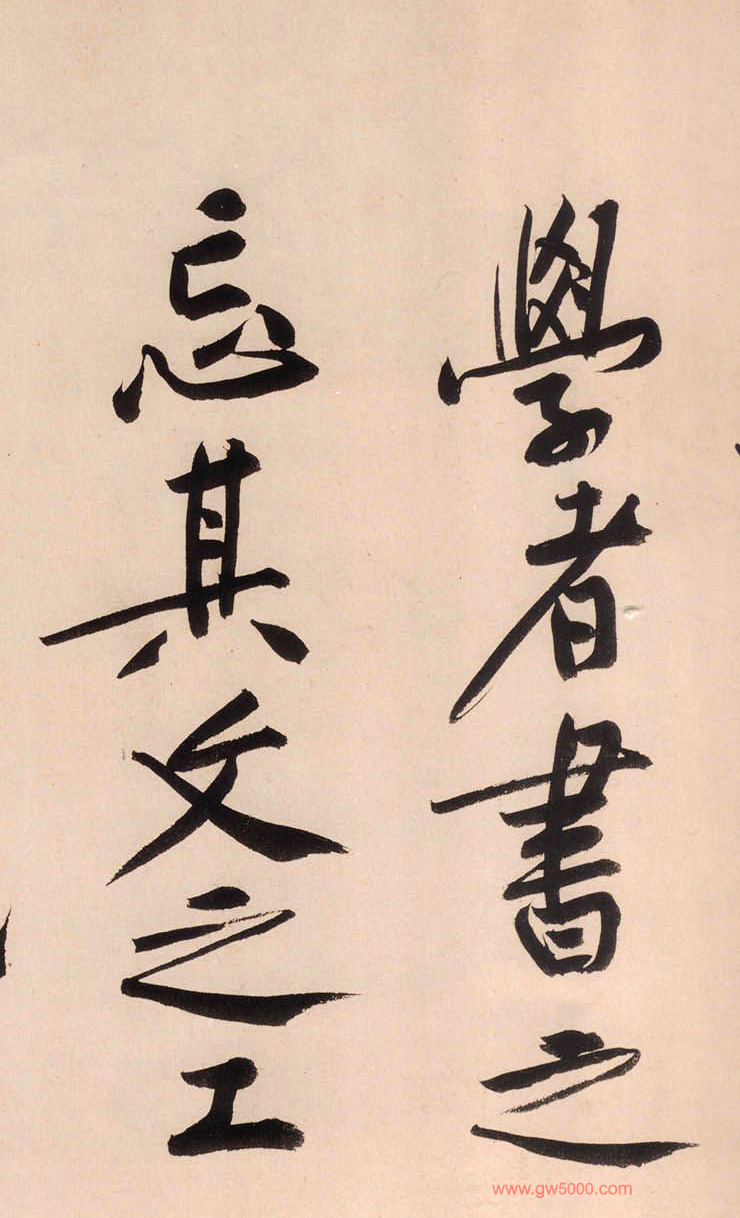 學者書之
忘其文之工
www.gw5000.com